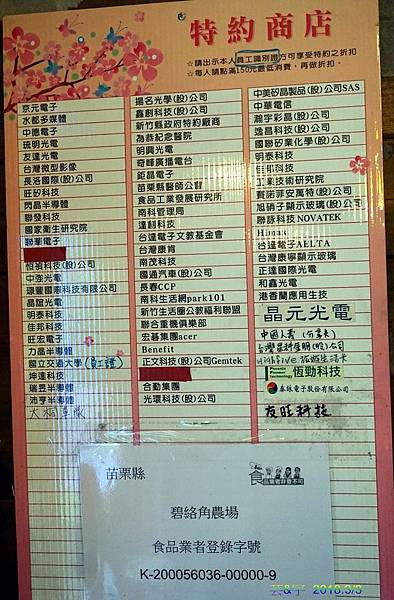 特約商店
☆請出示本人員工識別證方可享受特約之折扣
☆每人請點滿150元最低消費，再做折扣。
京元電子
水都多媒體
中德電子
琉明光電
友達光電
台灣微型影像
長洛國際(股)公司
鉅矽科技
閃晶半導體
聯發科技
國家衛生研究院
聯華電子
恒禎科技(股)公司
中強光電
環童國際科技有限公司
晶誼光電
明泰科技
佳邦科技
旺宏電子
力晶半導體
國立交通大學(紅證)
坤達科技
瑞昱半導體
沛亨半導體
大桐車隊
揚名光學(股)公司
鑫創科技(股)公司
新竹縣政府特約廠商
為恭紀念醫院
明興光電
奇峰廣播電台
鉅晶電子
苗栗縣醫師公會
食品工業發展研究所
南科管理局
達翻科技
台達電子文教基金會
台灣康肯
南茂科技
國通汽車(股)公司
長春CCP
南科生活網park101
新竹生活圈公教福利聯盟
聯合重機俱樂部
宏碁集團acer
Benefit
正文科技(股)公司Gemtek
合勤集團
光環科技(股)公司
中美矽晶製品(股)公司SAS
中華電信
瀚宇彩晶(股)公司
逸昌科技(股)公司
國聯矽業化學(股)公司
明泰科技
工業技術研究院
賽諾菲安萬特(股)公司
旭硝子顯示玻璃(股)公司
聯詠科技NOVATEK
Himax
台達電子AELTA
台灣康寧顯示玻璃
正達國際光電
和鑫光電
港香蘭應用生技
晶元光電
中國人壽
Highfive 旅遊生活卡
Phoenix Pioneer technology 恆勁科技
泰詠電子股份有限公司
友旺科技
苗栗縣
食品業者登錄不可
碧絡角農場
食品業者登錄字號
K-200056036-00000-9
芸&宇 2018.3/3